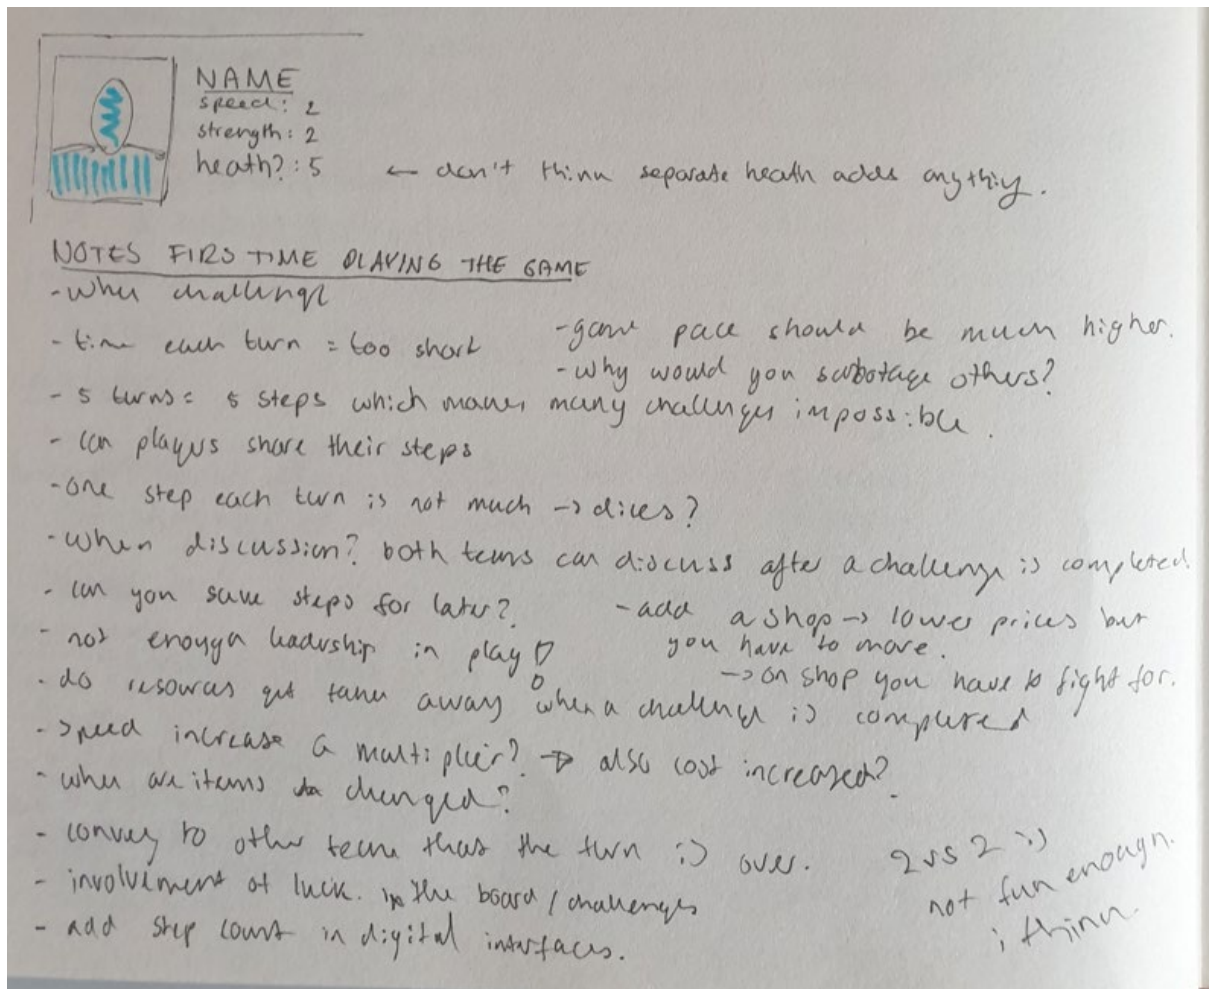 NAME
speed: 2
strength: 2
heath?: 5 ← don't think separate heath adds anything.
NOTES FIRST TIME PLAYING THE GAME
- when challenge
- time each turn = too short
- game pace should be much higher.
- why would you sabotage others?
- 5 turns = 5 steps which makes many challenges impossible.
- can players share their steps
- one step each turn is not much → dices?
- when discussion? both teams can discuss after a challenge is completed.
- can you save steps for later?
- add a shop → lower prices but
you have to move.
→ on shop you have to fight for.
- not enough leadership in play!
- do resources get taken away when a challenge is completed
- speed increase a multiplier? → also cost increased?
- when are items changed?
- convey to other team that the turn is over.
- involvement of luck. in the board / challenges
- add step count in digital interfaces.
2 vs 2 is
not fun enough.
i think.